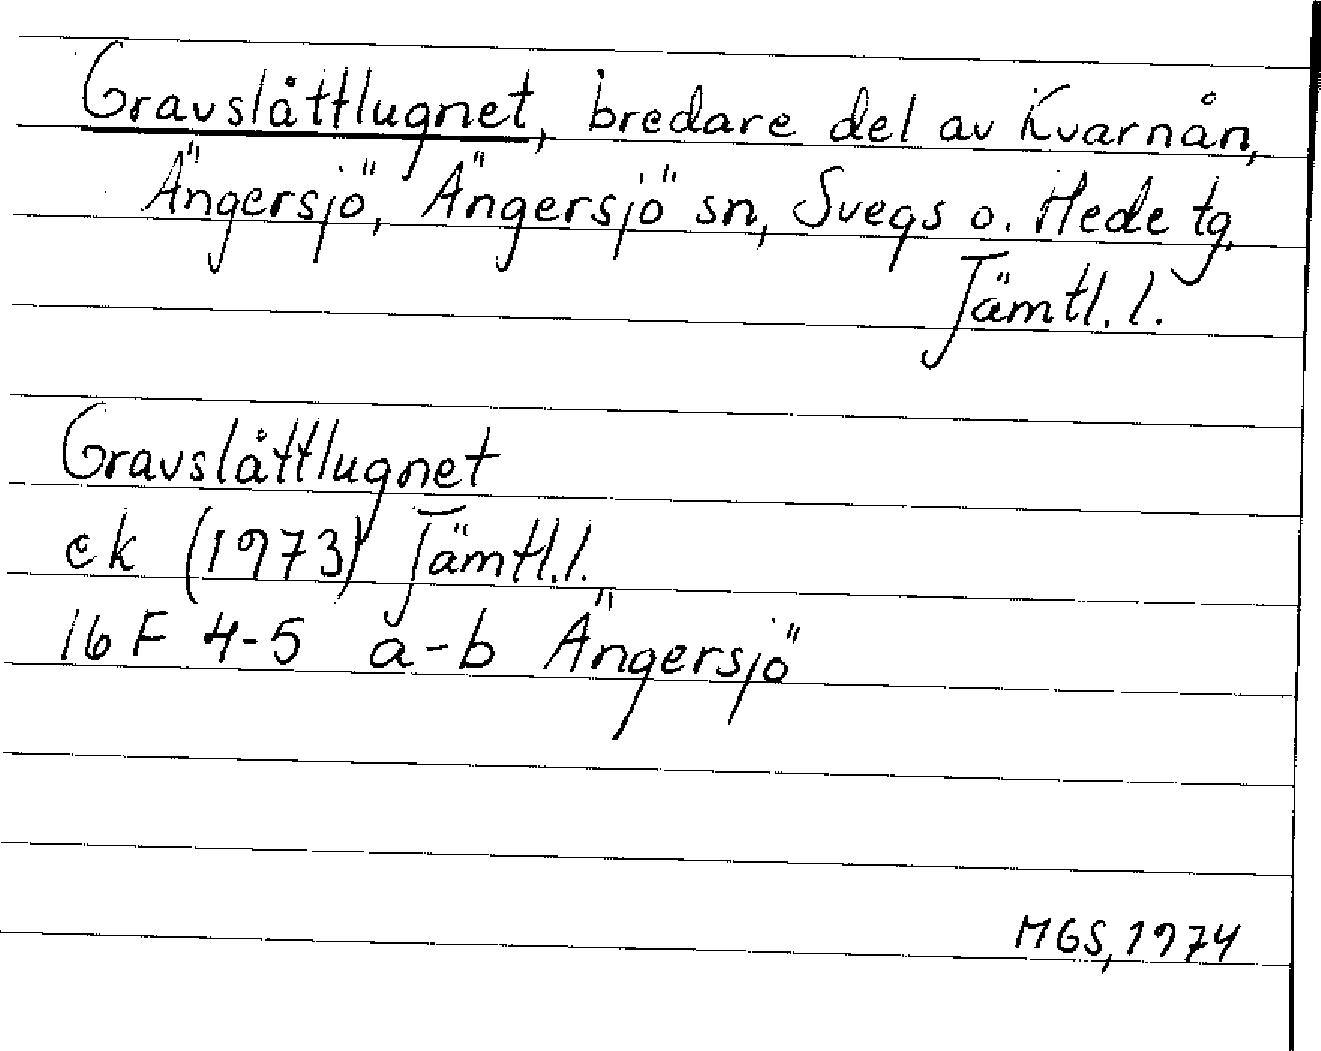 Gravslåttlugnet, bredare del av Kvarnån,
Ängersjö, Ängersjö sn, Svegs o. Hede tg,
Jämtl. l.
Gravslåttlugnet
ek (1973) Jämtl. l.
16 F 4-5 a-b Ängersjö
MGS, 1974